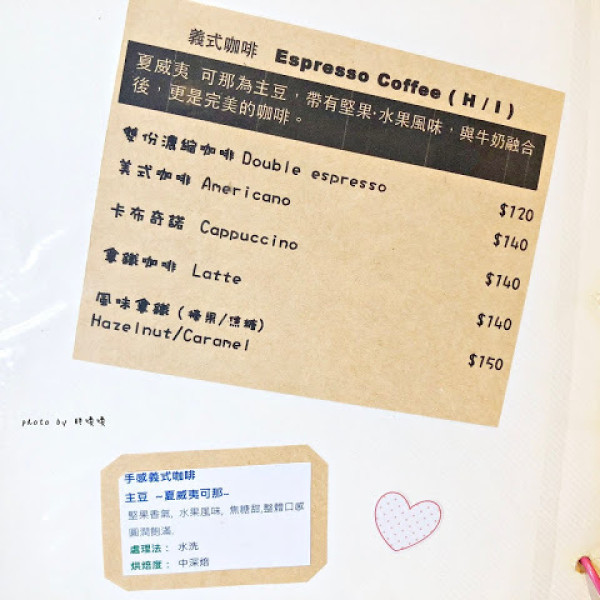 義式咖啡 Espresso Coffee ( H / I )
夏威夷 可那為主豆，帶有堅果·水果風味，與牛奶融合
後，更是完美的咖啡。
雙份濃縮咖啡 Double espresso $120
美式咖啡 Americano $140
卡布奇諾 Cappuccino $140
拿鐵咖啡 Latte $140
風味拿鐵 (榛果/焦糖) $150
Hazelnut/Caramel
photo by
手感義式咖啡
主豆 ~夏威夷可那~
堅果香氣, 水果風味, 焦糖甜,整體口感
圓潤飽滿.
處理法： 水洗
烘焙度： 中深焙